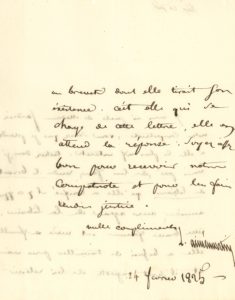 au brevet dont elle tirait son
existence. C'est elle qui se
charge de cette lettre, elle en
attend la réponse. Soyez
bon pour recevoir notre
compatriote et pour lui faire
rendre justice.
mille compliments
24 février 182